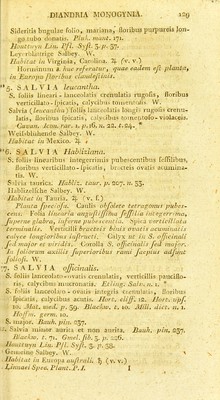 DIANDRIA MONOGYNIA. 129
Sideritis bugulae folio, mariana, floribus purpureis lon-
go tubo donatis. Pluk. mant. 171.
Houttuyn Lin. Pfl. Syst. 5. p. 37.
Leyerblättrige Salbey. W.
Habitat in Virginia, Carolina. ♃ (v. v.)
Horminum s huc referatur, quae eadem est planta,
in Europa floribus clandestinis.
*5. SALVIA leucantha.
S. foliis lineari-lanceolatis crenulatis rugosis, floribus
verticillato-spicatis, calycibus tomentosis. W.
Salvia (leucantha) foliis lanceolatis longis rugosis crenu-
latis, floribus spicatis, calycibus tomentoso-violaceis.
Cavan. icon. rar. 1. p. 16. n. 22. t. 24. *
Weissblühende Salbey. W.
Habitat in Mexico. ♃
*6. SALVIA Hablitziana.
S. foliis linearibus integerrimis pubescentibus sessilibus,
floribus verticillato-spicatis, bracteis ovatis acumina-
tis. W.
Salvia taurica. Hablitz. taur. p. 207. n. 33.
Hablitzische Salbey. W.
Habitat in Tauria. ♃ (v. s.)
Planta speciosa. Caulis obsolete tetragonus pubes-
cens. Folia linearia angustissima sessilia integerrima,
superne glabra, inferne pubescentia. Spica verticillata
terminalis. Verticilli bracteis binis ovatis acuminatis
calyce longioribus suffulti. Calyx ut in S. officinali
sed major et viridis. Corolla S. officinalis sed major.
In foliorum axillis superioribus rami saepius adsunt
foliosi. W.
7. SALVIA officinalis.
S. foliis lanceolato-ovatis crenulatis, verticillis pauciflo-
ris, calycibus mucronatis. Etling. Salv. n. 1. *
S. foliis lanceolato-ovatis integris crenulatis, floribus
spicatis, calycibus acutis. Hort. cliff. 12. Hort. ups.
10. Mat. med. p. 39. Blackw. t. 10. Mill. dict. n. 1.
Hoffm. germ. 10.
S. major. Bauh. pin. 237.
Salvia minor aurita et non aurita. Bauh. pin. 237.
Blackw. t. 71. Gmel. sib. 3. p. 226.
Houttuyn Lin. Pfl. Syst. 5. p. 38.
Gemeine Salbey. W.
Habitat in Europa australi. ♄ (v. v.)
Linnaei Spec. Plant. T. I. I